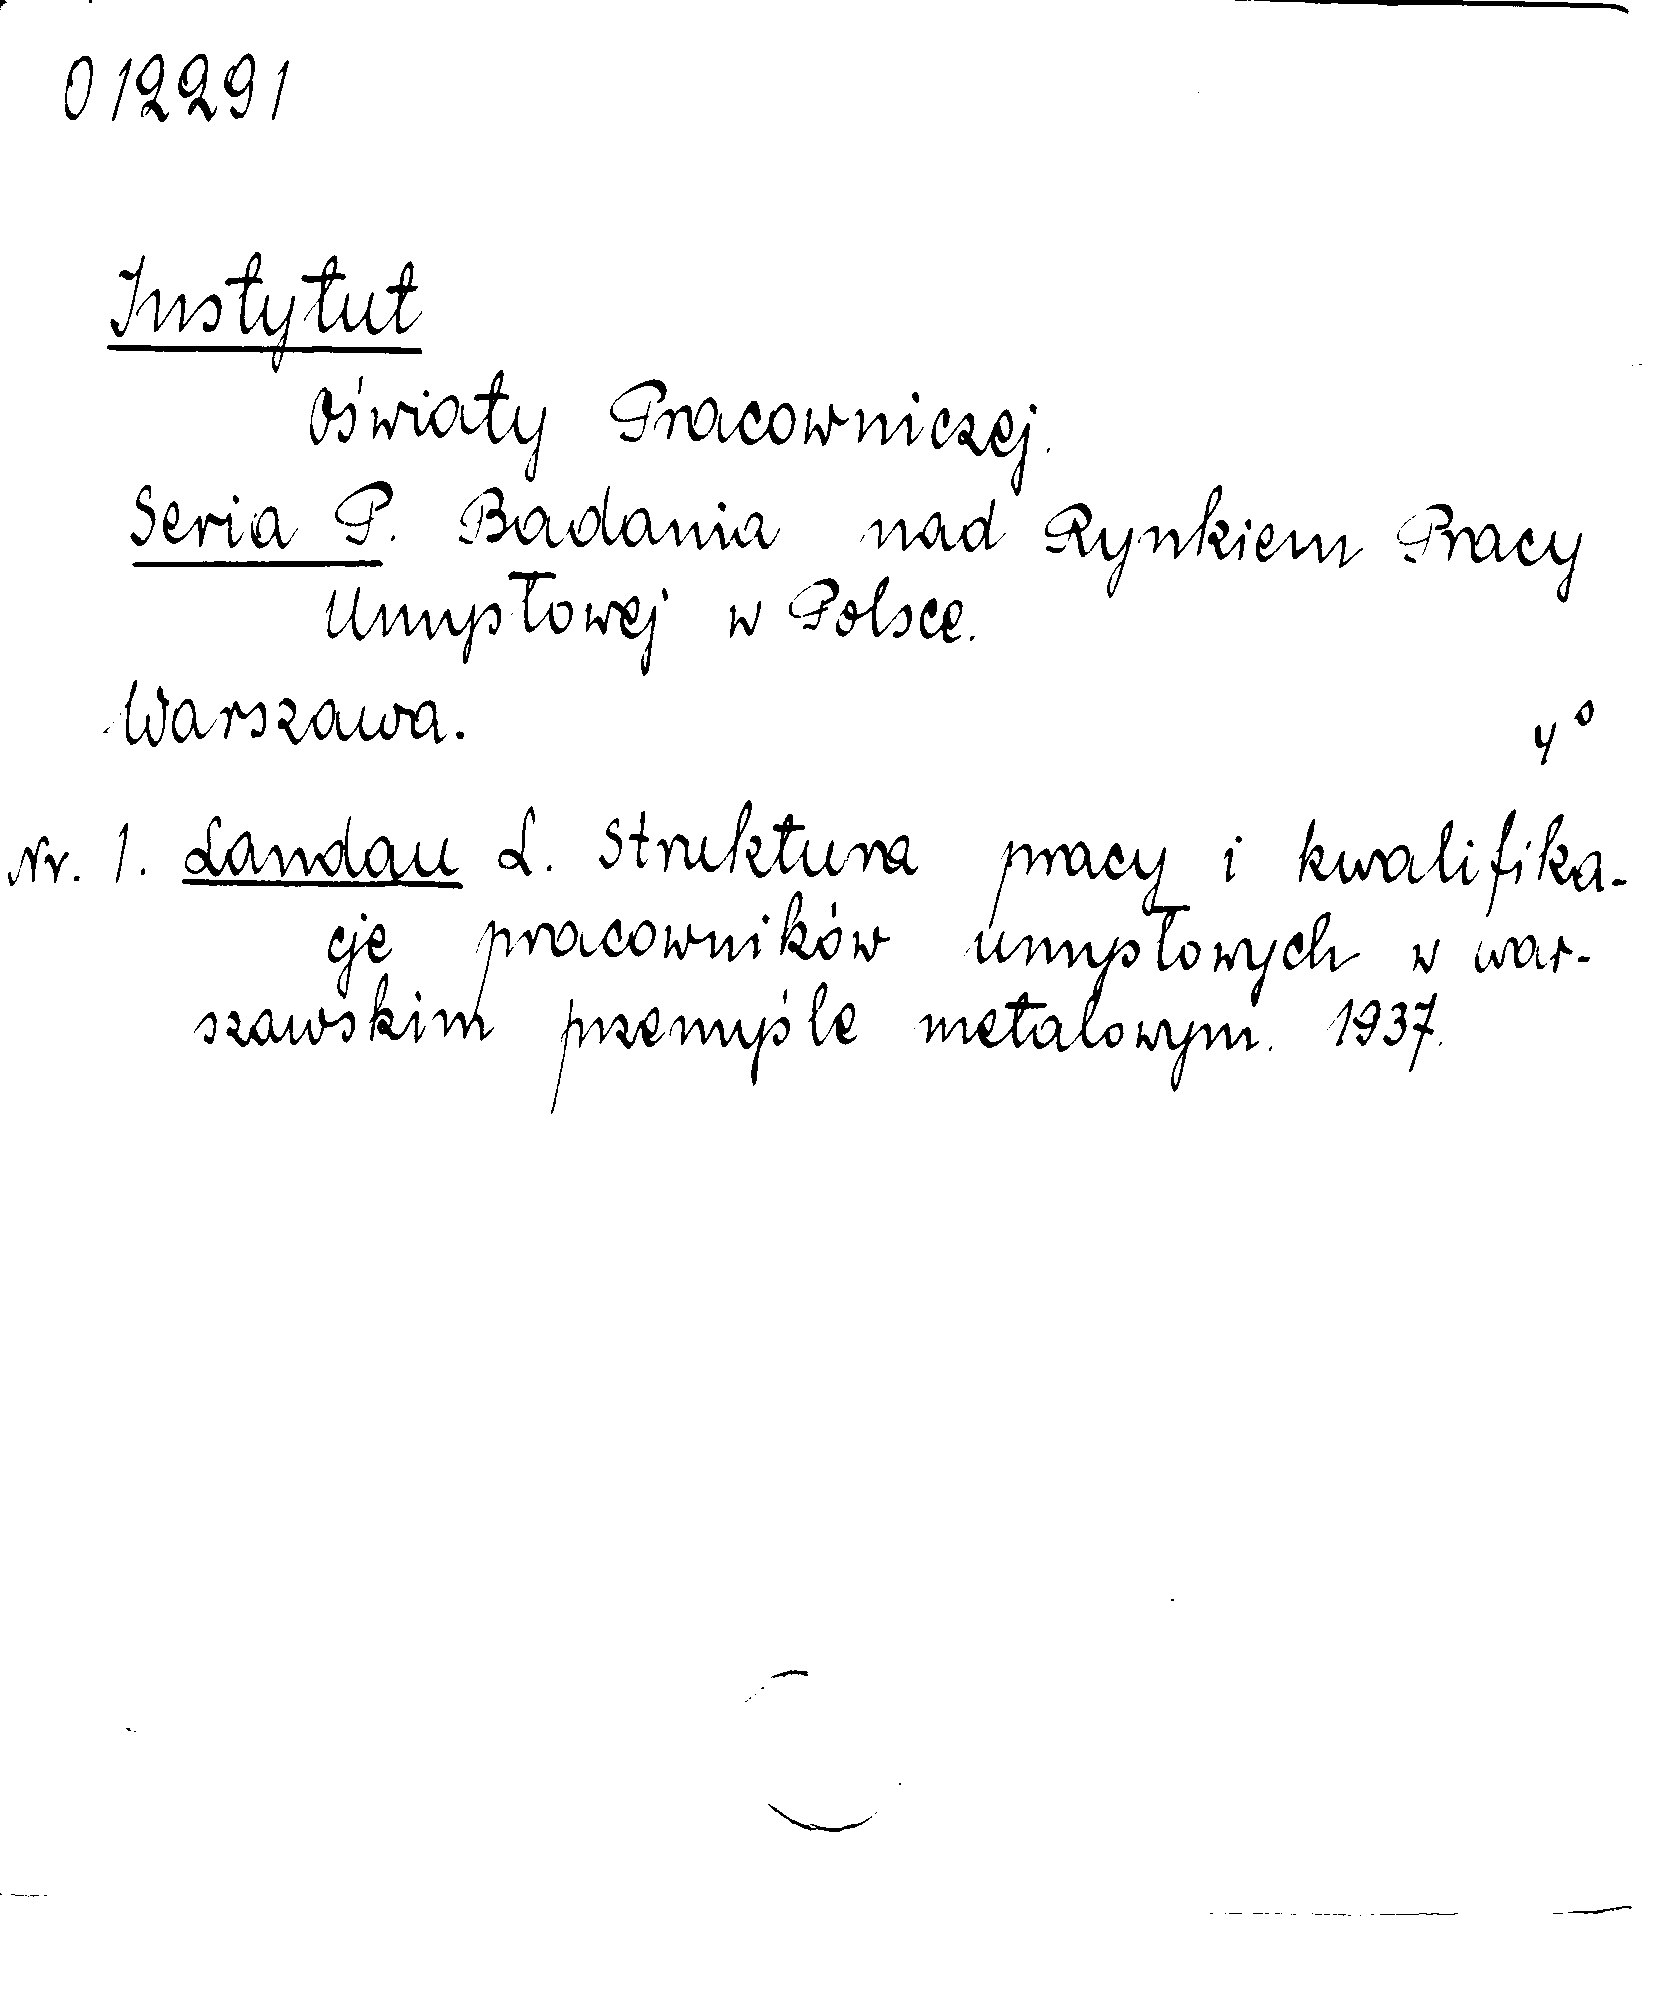 012291
Instytut
Oświaty Pracowniczej.
Seria P. Badania nad Rynkiem Pracy
Umysłowej w Polsce.
Warszawa.
4°
Nr. 1. Landau L. Struktura pracy i kwalifika-
cje pracowników umysłowych w war-
szawskim przemyśle metalowym. 1937.